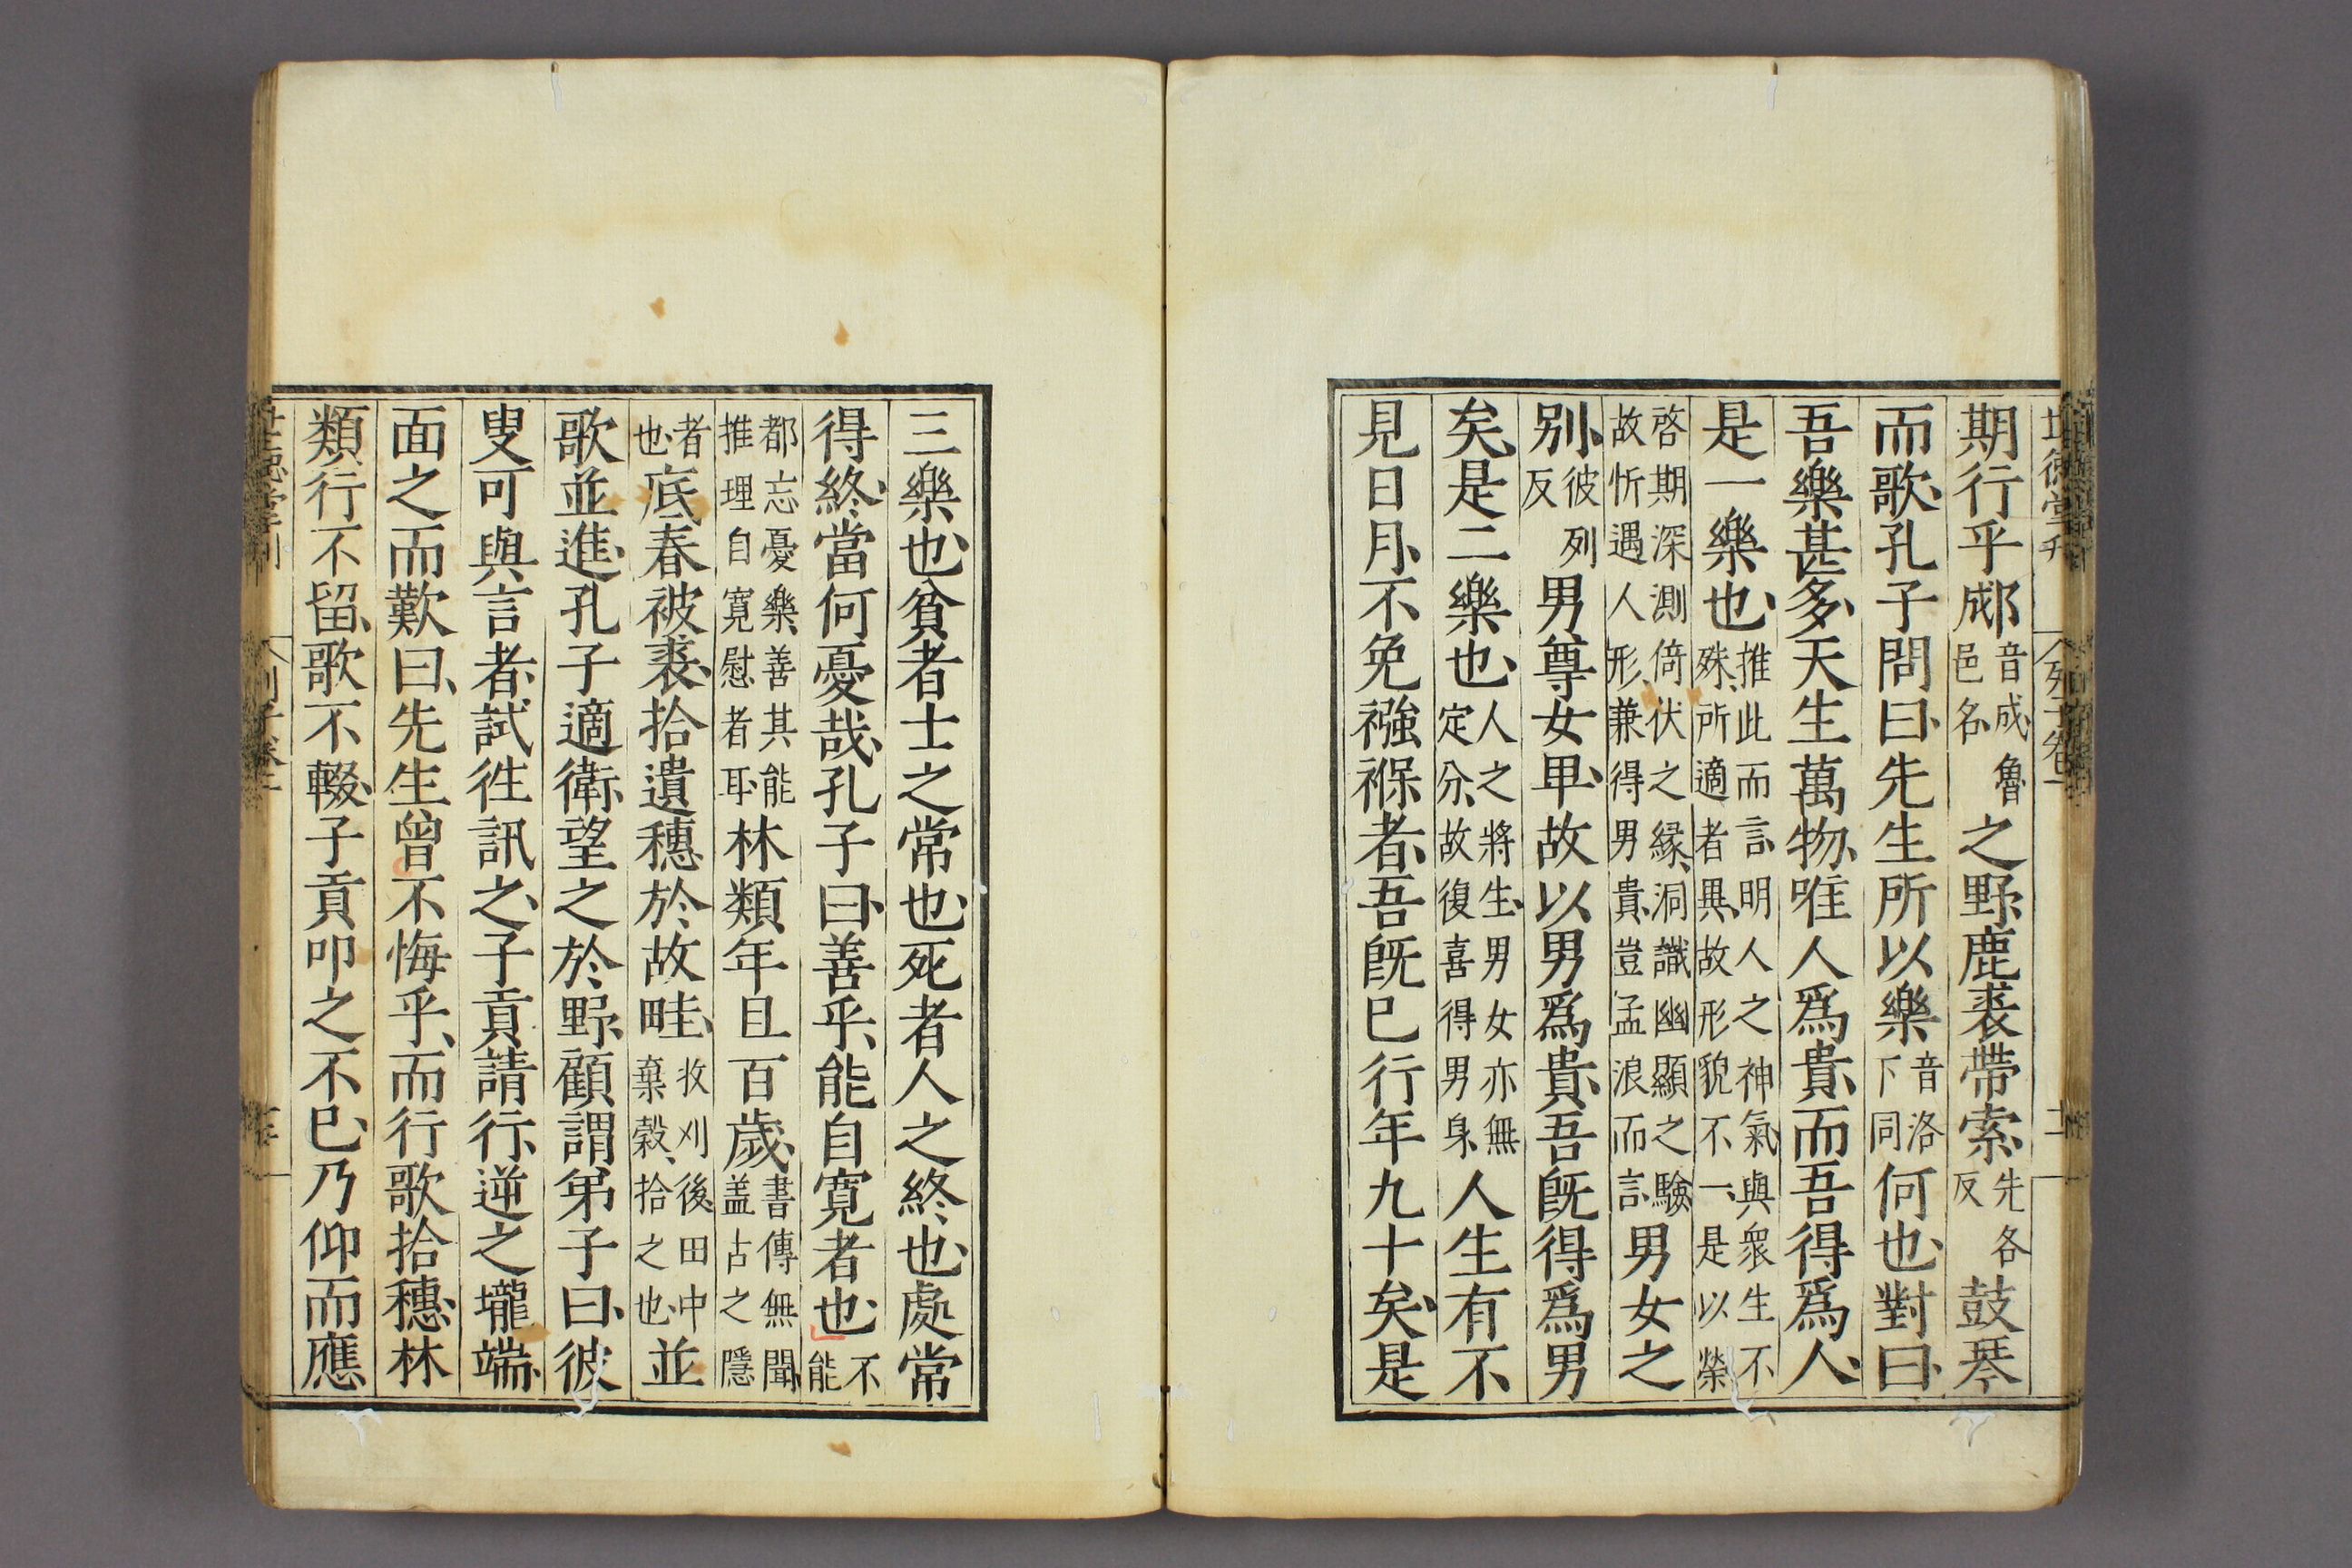 期行乎郕音成魯邑名之野鹿裘帶索先各反鼓琴
而歌孔子問曰先生所以樂音洛下同何也對曰
吾樂甚多天生萬物唯人爲貴而吾得爲人
是一樂也推此而言明人之神氣與衆生不殊所適者異故形貌不一是以榮
啓期深測倚伏之緣洞識幽顯之驗故忻遇人形兼得男貴豈孟浪而言男女之
別彼列反男尊女卑故以男爲貴吾旣得爲男
矣是二樂也人之將生男女亦無定分故復喜得男身人生有不
見日月不免襁褓者吾旣已行年九十矣是
三樂也貧者士之常也死者人之終也處常
得終當何憂哉孔子曰善乎能自寬者也不能
都忘憂樂善其能推理自寬慰者耳林類年且百歲書傳無聞蓋古之隱
者也底春被裘拾遺穗於故畦收刈後田中棄穀拾之也並
歌並進孔子適衛望之於野顧謂弟子曰彼
叟可與言者試往訊之子貢請行逆之壠端
面之而歎曰先生曾不悔乎而行歌拾穗林
類行不留歌不輟子貢叩之不已乃仰而應